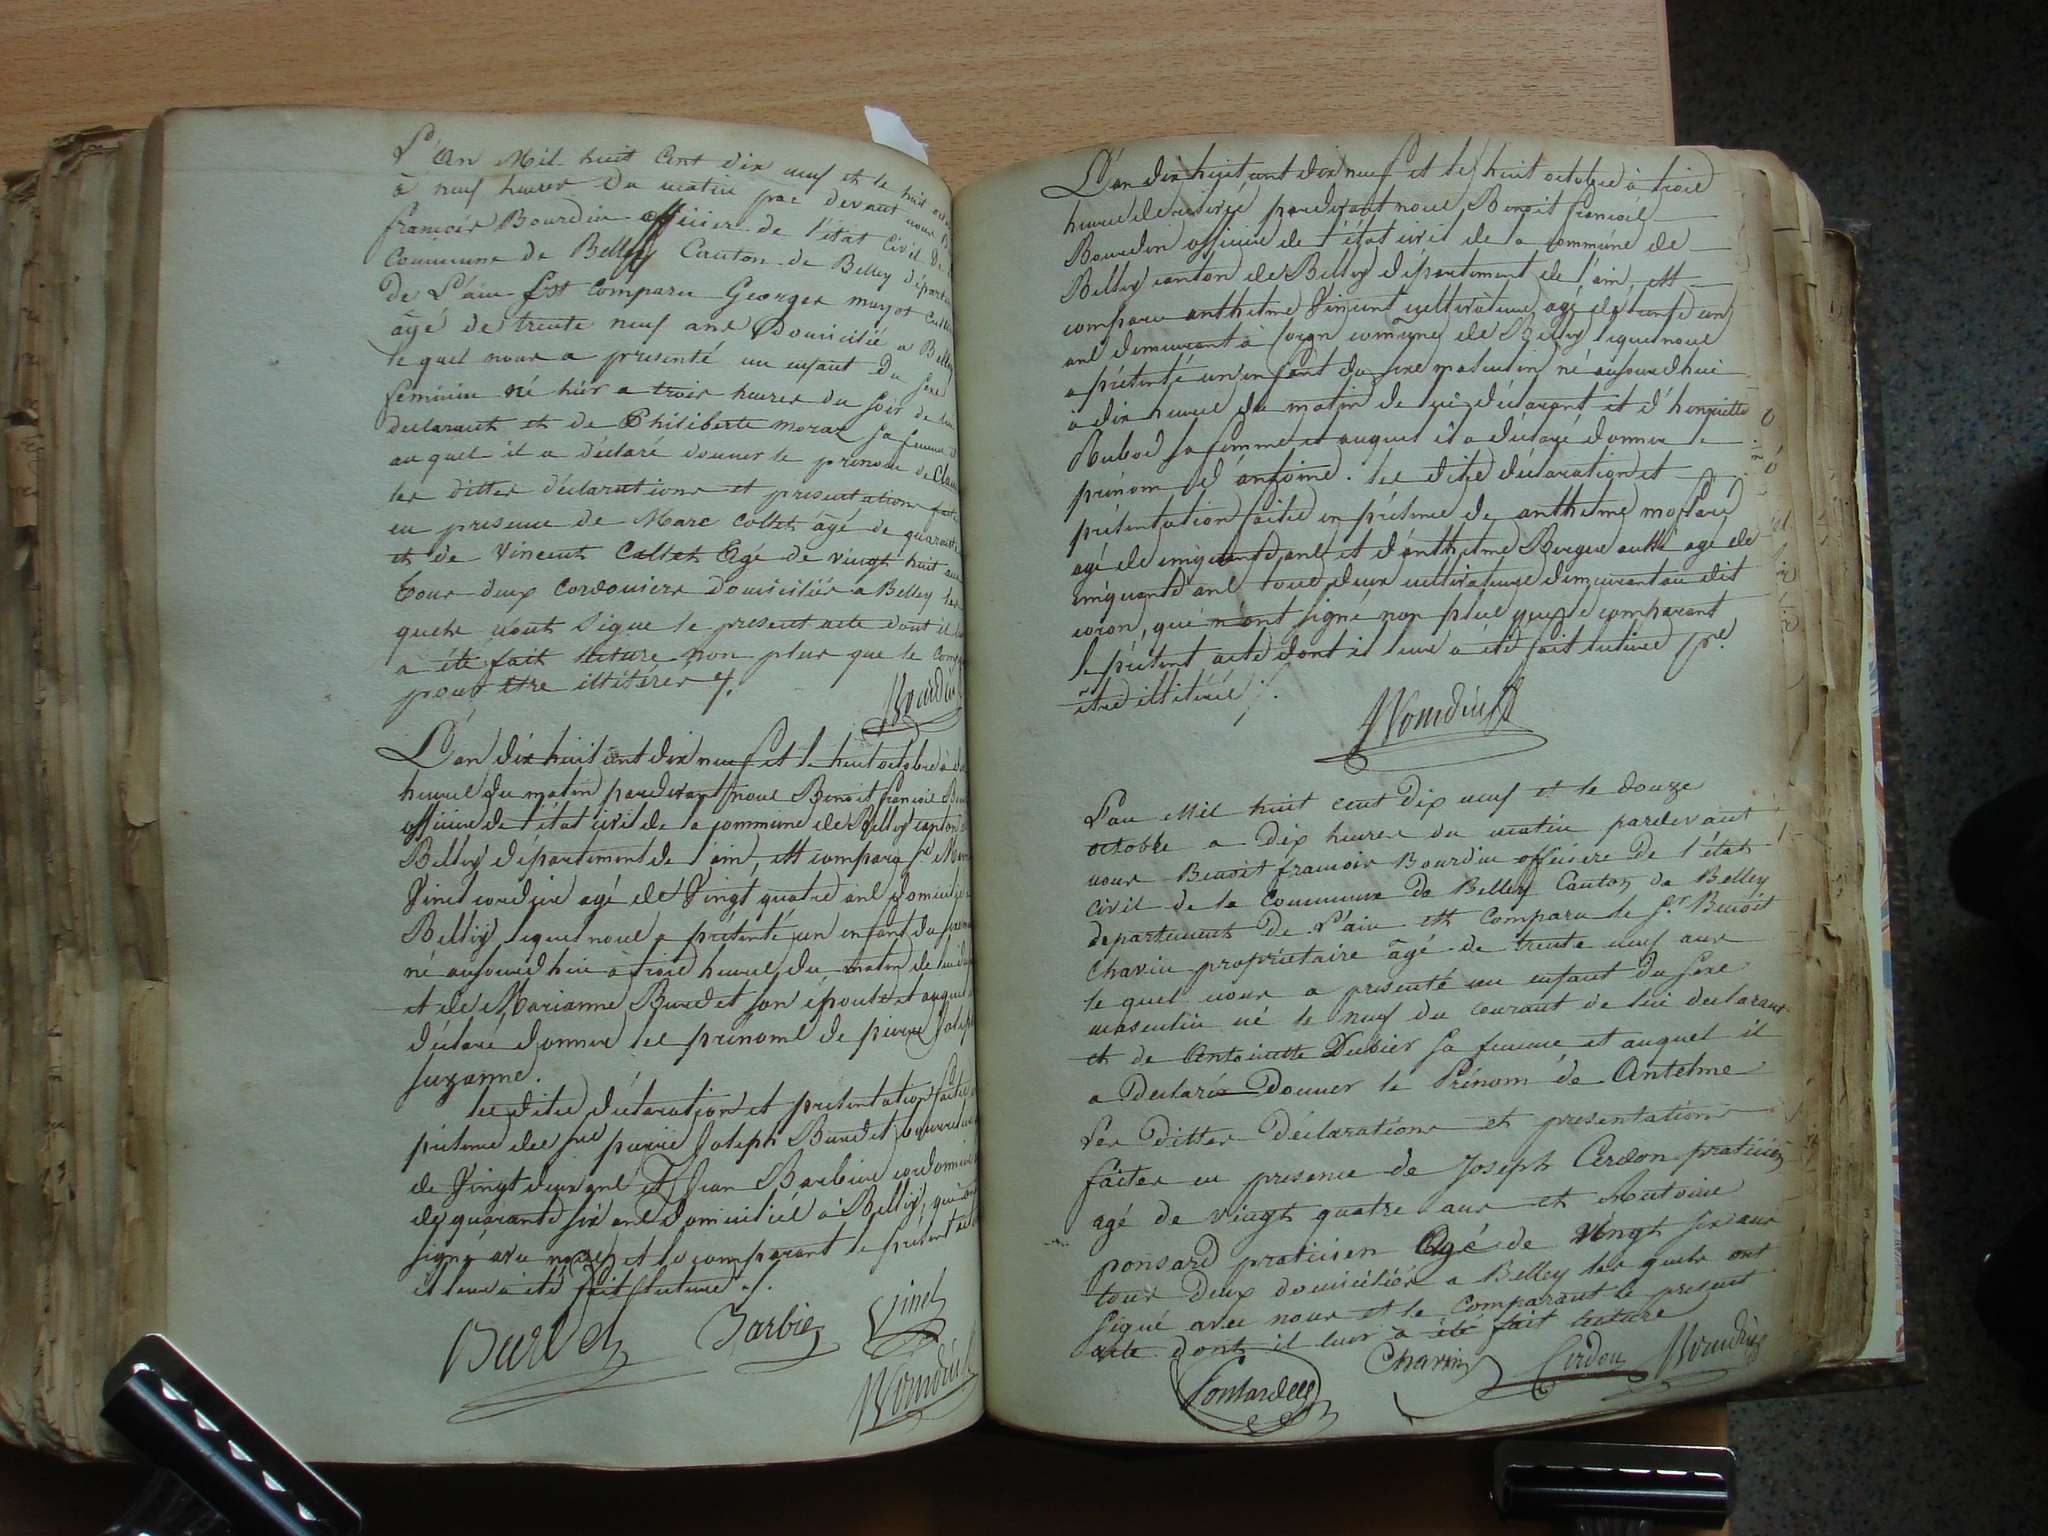 L'an Mil huit Cent dix neuf et le huit
à neuf heures du matin par devant nous
françois Bourdin officier de l'état civil De
Commune de Belley Canton de Belley départ
De L'ain Est comparu Georges mayot
âgé de trente neuf ans Domicilié a Bell
le quel nous a presenté un enfant Du sexe
feminin né hier a trois heures du soir de
declarant et de Philiberte moraz sa femme
au quel il a déclaré donner le prenom de Clau
les dittes déclarations et presentations fait
en presence de Marc Collet âgé de quarante
et de Vincent Collet Agé de vingt huit ans
tous deux cordonniers domiciliés a Belley les
quels n'ont signé le present acte dont il
a été fait lecture non plus que le comp
pour être illitérés /.
Bourdin
L'an dix huit cent dix neuf et le huit octobre à
heures du matin pardevant nous Benoit françois
officier de l'état civil de la commune de Belley canton
Belley département de l'ain, est comparu
Vinet cordier agé de Vingt quatre ans domicilié
Belley lequel nous a présenté un enfant du sexe
né aujourd'hui à trois heures du matin de
et de Marianne Burdet son épouse et auquel
déclaré donner les prénoms de pierre Joseph
suzanne.
les dites déclaration et présentation faites
présence des srs pierre Joseph Burdet
de Vingt deux ans et Jean Barbier cordonnier
de quarante six ans domiciliés à Belley, qui
signé avec nous et le comparant le présent acte
il leur a été fait lecture /.
Burdet Barbier Vinet
Bourdin
L'an dix huit cent dix neuf et le huit octobre à trois
heures de relevée pardevant nous Benoit françois
Bourdin officier de l'état civil de la commune de
Belley canton de Belley département de l'ain, est
comparu anthelme Vincent cultivateur agé de
ans demeurant à commune de Belley lequel nous
a présenté un enfant du sexe masculin né aujourdhui
à dix heures du matin de lui déclarant et d'henriette
Rubod sa femme et auquel il a déclaré donner le
prénom d'antoine. les dites déclaration et
présentation faites en présence de anthelme
agé de cinquante ans et d'anthelme Berger aussi agé de
cinquante ans tous deux cultivateurs demeurant au dit
coron, qui n'ont signé non plus que le comparant
le présent acte dont il leur a été fait lecture pr.
être illitérés /.
Bourdin
L'an Mil huit cent Dix neuf et le douze
octobre a Dix heures du matin pardevant
nous Benoit francois Bourdin officiere De l'état
civil de la Commune de Belley Canton de Belley
departement De L'ain est comparu le Sr. Benoit
Chavin propriétaire âgé de trente neuf ans
le quel nous a presenté un enfant du sexe
masculin né le neuf du courant de lui declarant
et de Antoinette Dubier sa femme et auquel il
a Declaré Donner le Prénom de Antelme
Les Dittes Déclarations et presentations
faites en presence de Joseph Cerdon praticien
agé de vingt quatre ans et Antoine
ponsard praticien Agé de Vingt six ans
tous Deux domiciliés a Belley les quels ont
signé avec nous et le Comparant le present
acte dont il leur a été fait lecture
Chavin Cerdon Bourdin